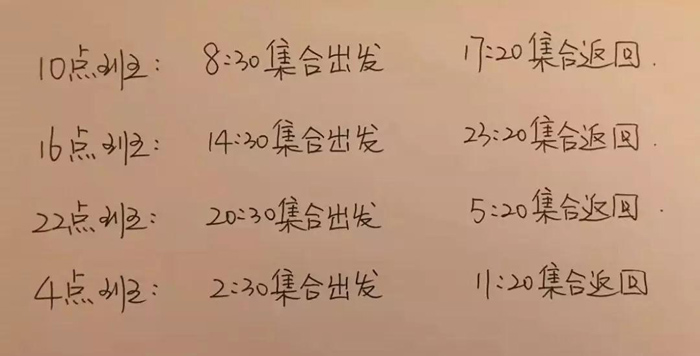 10点班: 8:30集合出发 17:20集合返回.
16点班: 14:30集合出发 23:20集合返回.
22点班: 20:30集合出发 5:20集合返回.
4点班: 2:30集合出发 11:20集合返回